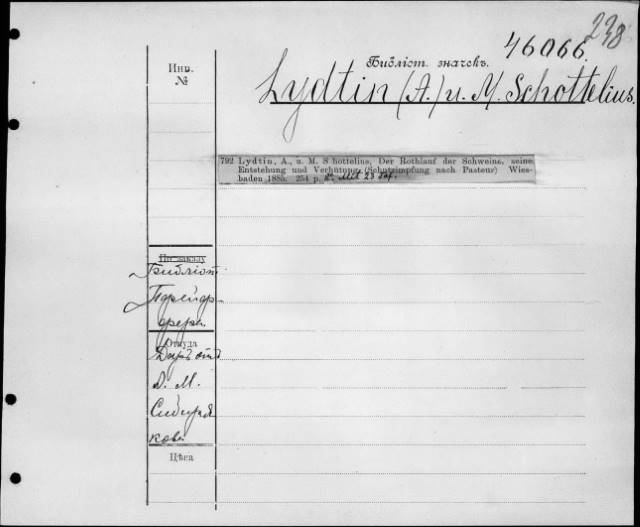 238
46066.
Инв.
№
Библіот. значекъ.
Lydtin (A.) u. M. Schottelius.
792 Lydtin, A., u. M. S hottelius, Der Rothlauf der Schweins, seine
Entstehung und Verhütung (Schutzimpfung nach Pasteur) Wies-
baden 1885. 254 p. 8º. Mit 23 Taf.
По заказу
Библіот.
Пфейф-
фера.
Откуда
Даръ отъ
А. М.
Сибиря-
кова
Цѣна